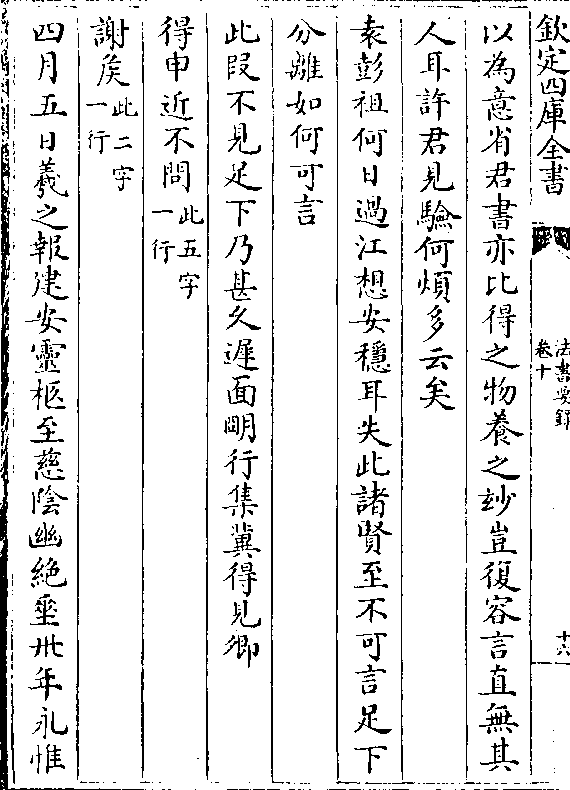 欽定四庫全書
法書要録
卷十
十六
以為意省君書亦比得之物養之玅豈復容言直無其
人耳許君見驗何煩多云矣
袁彭祖何日過江想安穩耳失此諸賢至不可言足下
分離如何可言
此叚不見足下乃甚久遲面眀行集冀得見卿
得申近不問此五字一行
謝矦此二字一行
四月五日羲之報建安靈柩至慈陰幽絶垂卅年永惟